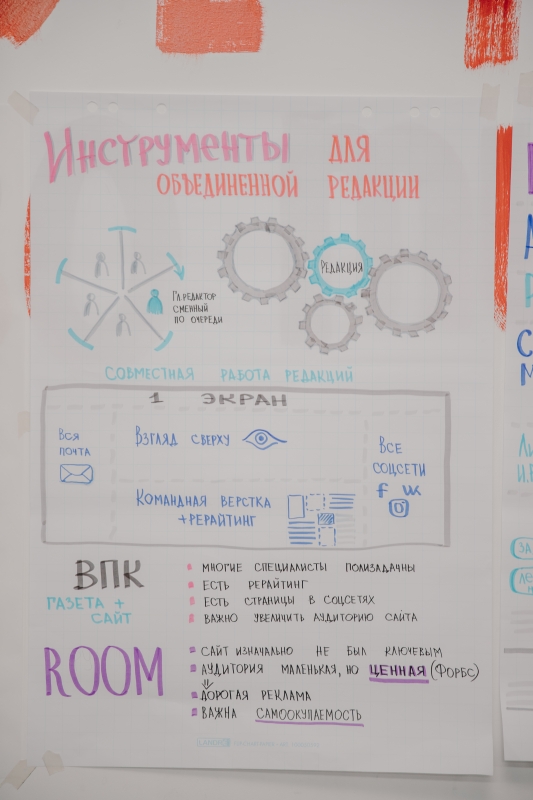 Инструменты для
объединенной редакции
Редакция
Гл.редактор
сменный
по очереди
Совместная работа редакций
1 экран
Вся
почта
Взгляд сверху
Все
соцсети
Командная верстка
+рерайтинг
ВПК
газета +
сайт
многие специалисты полизадачны
есть рерайтинг
есть страницы в соцсетях
важно увеличить аудиторию сайта
ROOM
сайт изначально не был ключевым
аудитория маленькая, но ценная (Форбс)
дорогая реклама
важна самоокупаемость